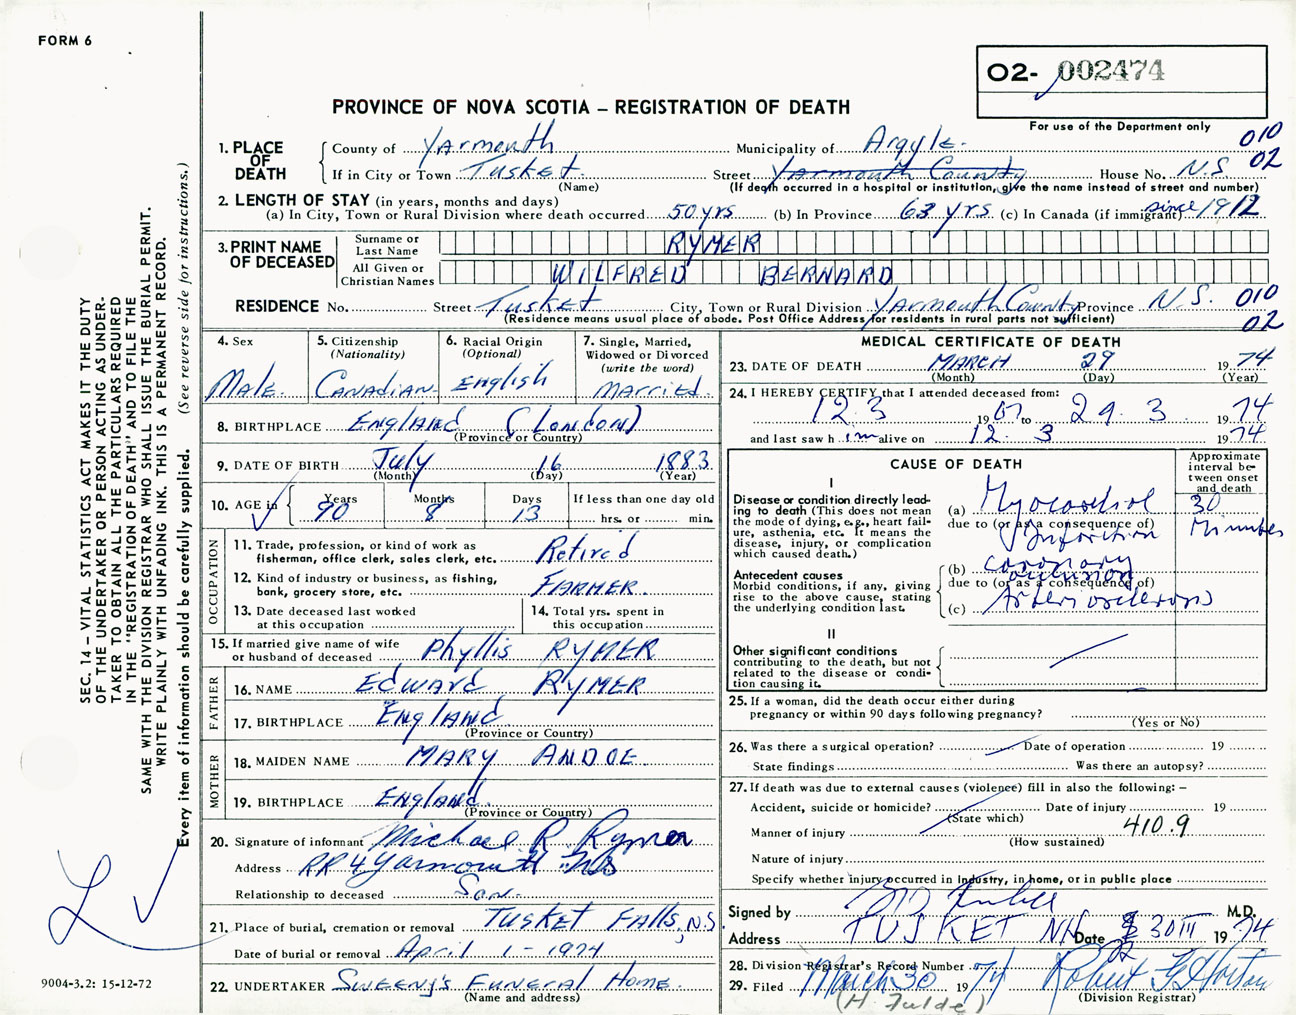 FORM 6
02- 002474
PROVINCE OF NOVA SCOTIA – REGISTRATION OF DEATH
For use of the Department only
010
02
1. PLACE OF DEATH
County of Yarmouth Municipality of Argyle
If in City or Town Tusket Street Yarmouth County House No. N.S
(Name) (If death occurred in a hospital or institution, give the name instead of street and number)
2. LENGTH OF STAY (in years, months and days)
(a) In City, Town or Rural Division where death occurred 50 yrs (b) In Province 63 yrs (c) In Canada (if immigrant) since 1912
3. PRINT NAME OF DECEASED
Surname or Last Name RYMER
All Given or Christian Names WILFRED BERNARD
RESIDENCE No. Street Tusket City, Town or Rural Division Yarmouth County Province N.S. 010
(Residence means usual place of abode. Post Office Address for residents in rural parts not sufficient) 02
4. Sex
Male
5. Citizenship (Nationality)
Canadian
6. Racial Origin (Optional)
English
7. Single, Married, Widowed or Divorced (write the word)
Married
8. BIRTHPLACE England (London)
(Province or Country)
9. DATE OF BIRTH July 16 1883
(Month) (Day) (Year)
10. AGE in Years Months Days If less than one day old
90 8 13 hrs. or min.
OCCUPATION
11. Trade, profession, or kind of work as
fisherman, office clerk, sales clerk, etc. Retired
12. Kind of industry or business, as fishing,
bank, grocery store, etc. FARMER
13. Date deceased last worked
at this occupation
14. Total yrs. spent in
this occupation
15. If married give name of wife
or husband of deceased Phyllis RYMER
FATHER
16. NAME EDWARD RYMER
17. BIRTHPLACE England
(Province or Country)
MOTHER
18. MAIDEN NAME MARY ANDOE
19. BIRTHPLACE England
(Province or Country)
20. Signature of informant Michael R. Rymer
Address RR 4 Yarmouth NS
Relationship to deceased Son
21. Place of burial, cremation or removal TUSKET FALLS, N.S
Date of burial or removal April 1 - 1974
22. UNDERTAKER Sweeny's Funeral Home
(Name and address)
MEDICAL CERTIFICATE OF DEATH
23. DATE OF DEATH MARCH 29 1974
(Month) (Day) (Year)
24. I HEREBY CERTIFY that I attended deceased from:
12.3 1967 to 29.3. 1974
and last saw h im alive on 12. 3 1974
CAUSE OF DEATH
Approximate interval between onset and death
I
Disease or condition directly leading to death (This does not mean the mode of dying, e.g., heart failure, asthenia, etc. It means the disease, injury, or complication which caused death.)
(a) Myocardial 30
due to (or as a consequence of) Infarction Minutes
Antecedent causes
Morbid conditions, if any, giving rise to the above cause, stating the underlying condition last.
(b) coronary occlusion
due to (or as a consequence of)
(c) Arteriosclerosis
II
Other significant conditions
contributing to the death, but not related to the disease or condition causing it.
25. If a woman, did the death occur either during
pregnancy or within 90 days following pregnancy?
(Yes or No)
26. Was there a surgical operation? Date of operation 19
State findings Was there an autopsy?
27. If death was due to external causes (violence) fill in also the following: –
Accident, suicide or homicide? Date of injury 19
(State which)
410.9
Manner of injury
(How sustained)
Nature of injury
Specify whether injury occurred in Industry, in home, or in public place
Signed by M.D.
Address TUSKET NS Date 30 III 1974
28. Division Registrar's Record Number
29. Filed March 30 1974 Robert G Horton
(Division Registrar)
(H. Fulde)
SEC. 14 – VITAL STATISTICS ACT MAKES IT THE DUTY
OF THE UNDERTAKER OR PERSON ACTING AS UNDER-
TAKER TO OBTAIN ALL THE PARTICULARS REQUIRED
IN THE "REGISTRATION OF DEATH" AND TO FILE THE
SAME WITH THE DIVISION REGISTRAR WHO SHALL ISSUE THE BURIAL PERMIT.
WRITE PLAINLY WITH UNFADING INK. THIS IS A PERMANENT RECORD.
Every item of information should be carefully supplied. (See reverse side for instructions.)
9004-3.2: 15-12-72